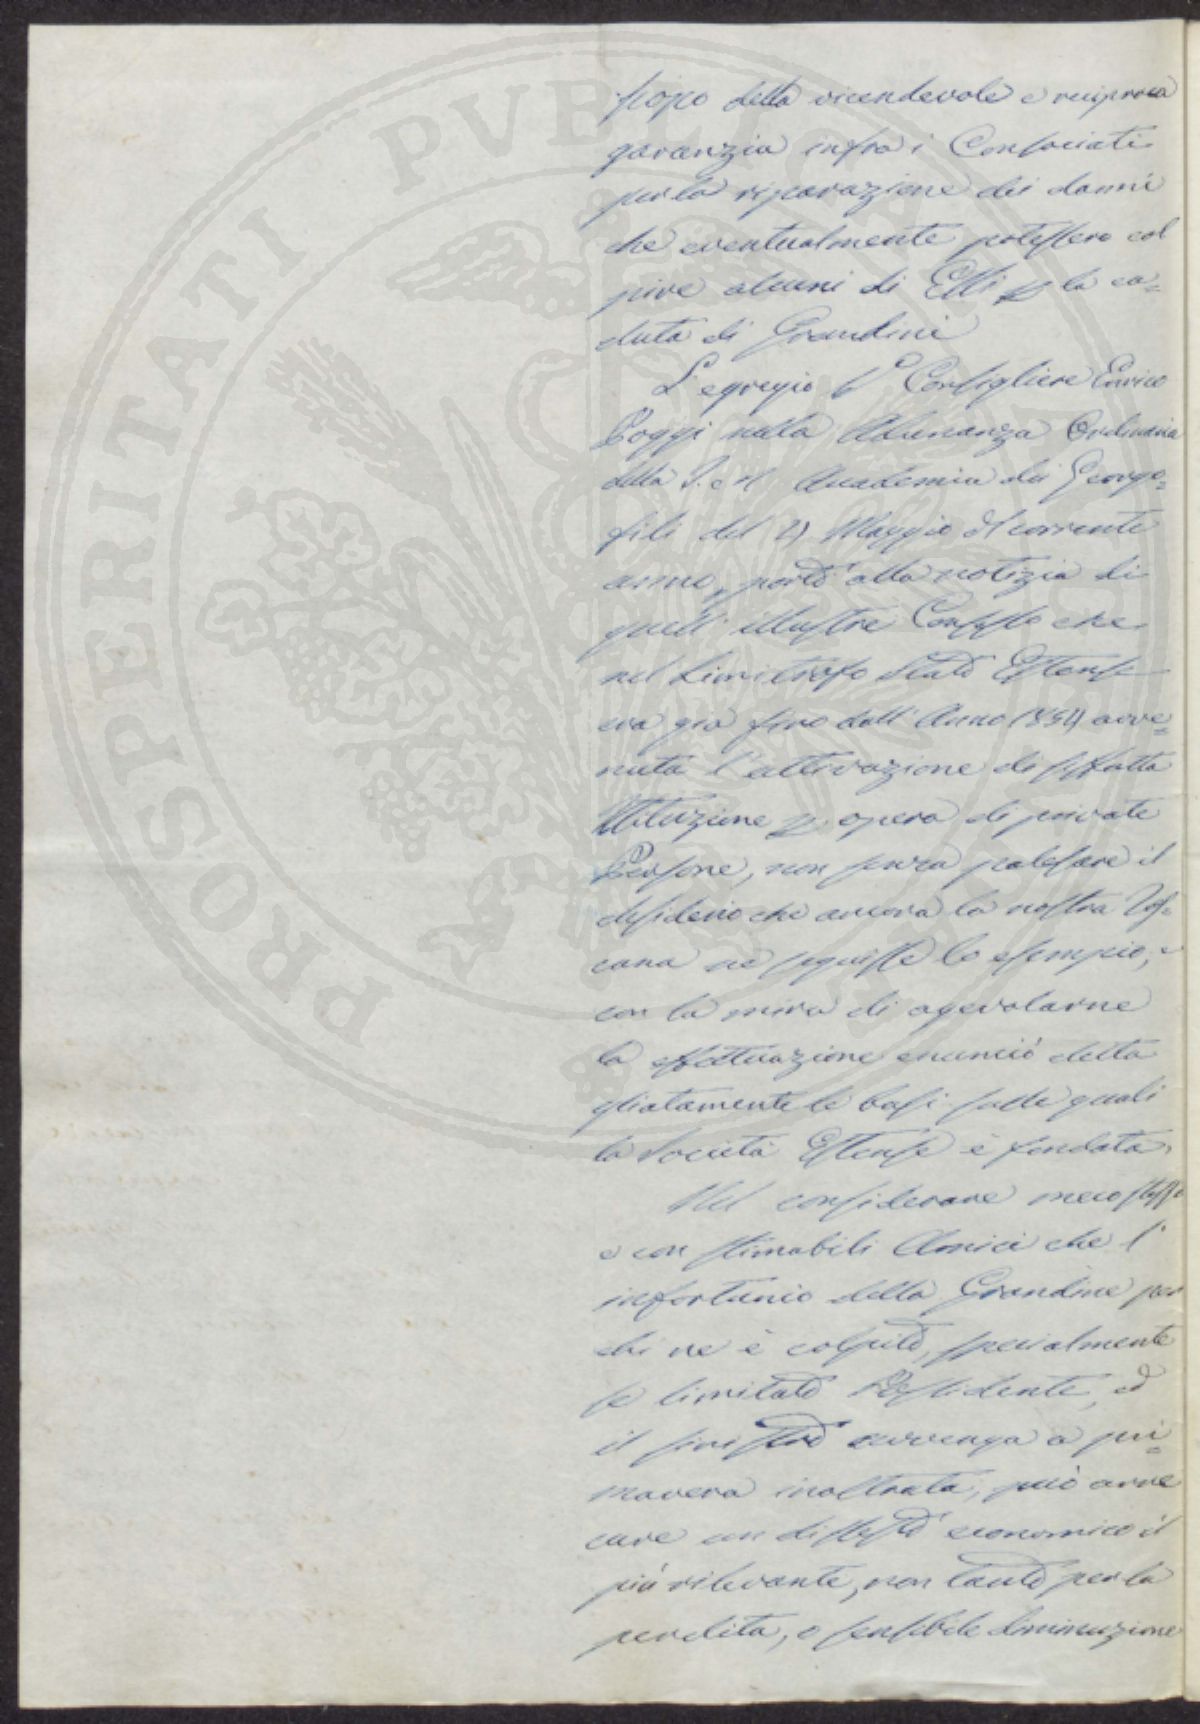 PROSPERITATI PVBLICAE
scopo della vicendevole e reciproca
garanzia infra i Consociati
per la riparazione dei danni
che eventualmente potessero col
pire alcuni di Essi per la ca=
duta di Grandini
L'egregio Sr. Consigliere Enrico
Poggi nella Adunanza Ordinaria
della I. e R. Accademia dei Georgo=
fili del Maggio del corrente
anno, portò alla notizia di
quell'illustre Consesso che
nel Limitrofo Stato Estense
era già fino dall'Anno 1854 avve=
nuta l'attivazione di siffatta
Istituzione per opera di private
Persone, non senza palesare il
desiderio che ancora la nostra Tos=
cana ne seguisse lo esempio, e
con la mira di agevolarne
la effettuazione enunciò detta
gliatamente le basi sulle quali
la Società Estense è fondata.
Nel considerare meco stesso
e con stimabili Amici che l'
infortunio della Grandine per
chi ne è colpito, specialmente
se limitato Possidente, ed
il sinistro avvenga a pri=
mavera inoltrata, può arre
care un dissesto economico il
più rilevante, non tanto per la
perdita, o sensibile diminuzione